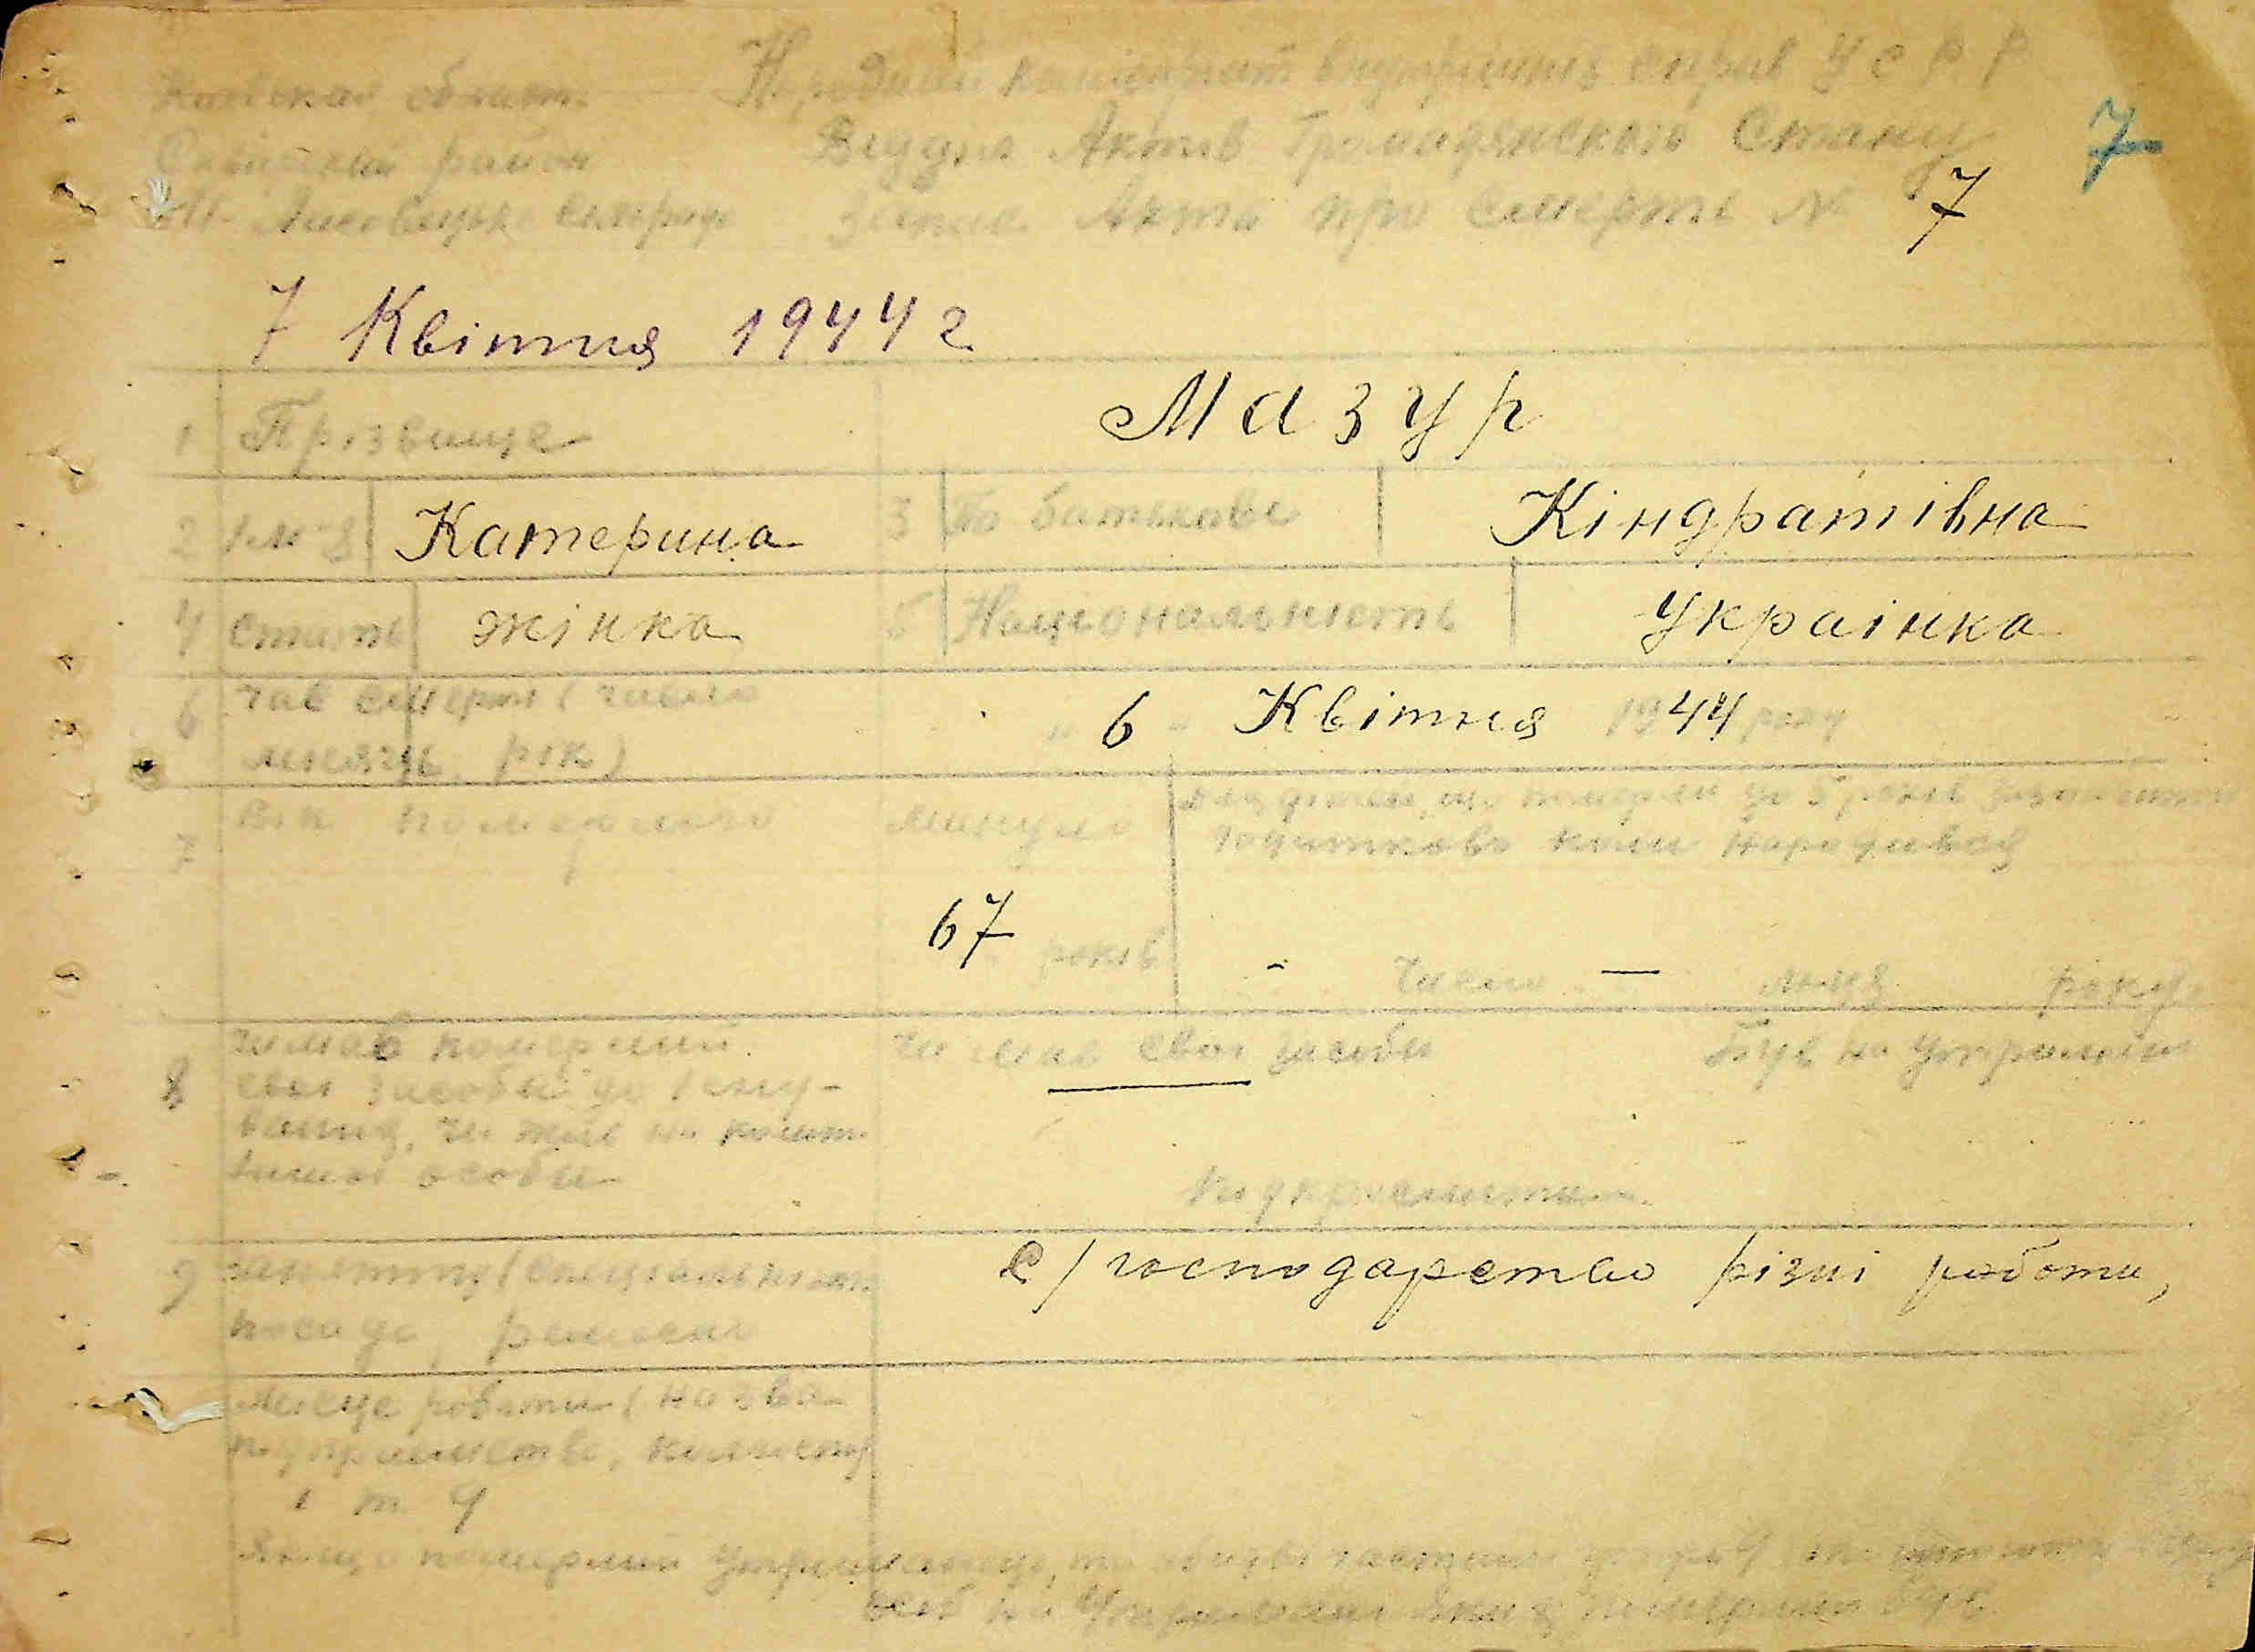 Київская область Народний комісаріат внутрішніх справ УСРР
район Відділ Актів Громадянского Стану 7
сільрада Запис Акта про смерть № 7
7 Квітня 1944 г.
1 Прізвище Мазур
2 Ім'я Катерина 3 По батькові Кіндратівна
4 Стать жінка 5 Національність Українка
6 Час смерті (число " 6 " Квітня 1944 року
місяць, рік)
7 Вік померлого минуло Для дітей, що померли до 5 років
додатково коли народився
67 років - число — м-ця року
8 Чи мав померлий Чи мав свої засоби Був на утриманні
свої засоби до існу-
вання, чи жив на кошти
іншої особи
Підкреслити
9 Заняття (спеціальність с/господарство різні роботи,
посада, ремесло
Місце роботи (назва
підприємства, колгоспу
і т д
Якщо померлий
осіб на утриманні яких померлий був